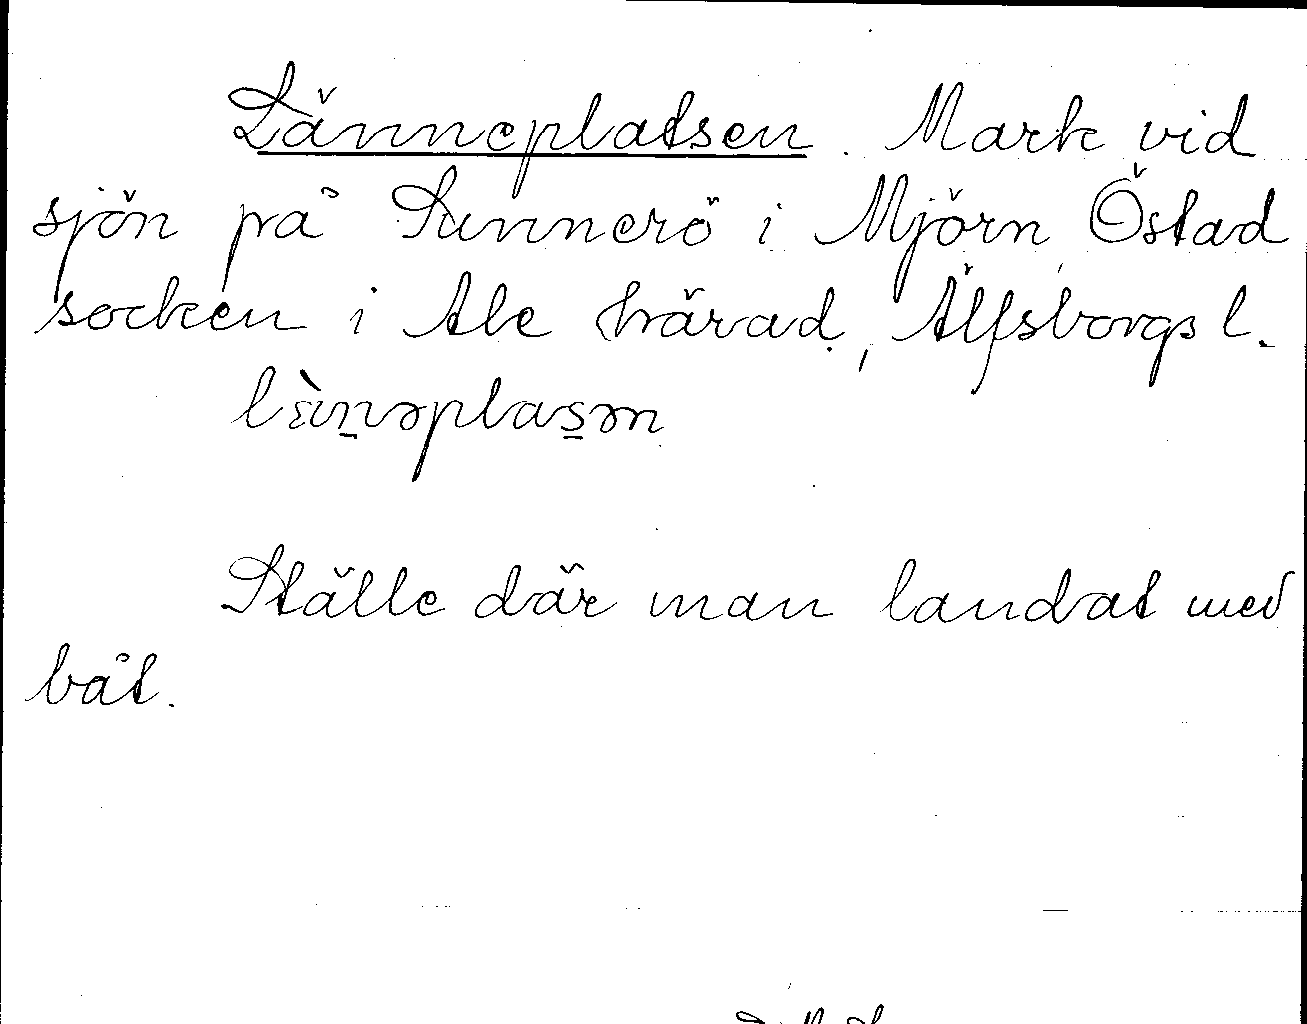 Länneplatsen. Mark vid
sjön på Sunnerö i Mjörn, Östad
socken i Ale härad, Älfsborgs l.
lὲn̠əplas̠ən
Ställe där man landat med
båt.